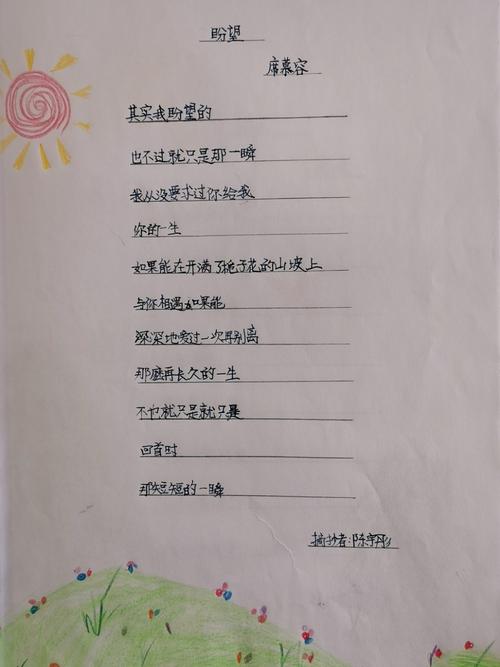 盼望
席慕容
其实我盼望的
也不过就只是那一瞬
我从没要求过你给我
你的一生
如果能在开满了栀子花的山坡上
与你相遇如果能
深深地爱过一次再别离
那底再长久的一生
不也就只是就只是
回首时
那短短的一瞬
摘抄者:陈宇彤